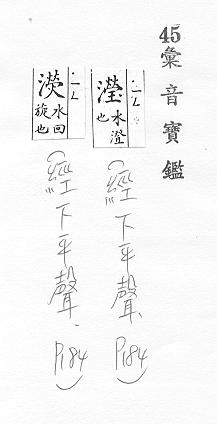 45彙音寶鑑
瀅 水澄也
(經下平聲、P184)
濙 水回旋也
(經下平聲、P184)